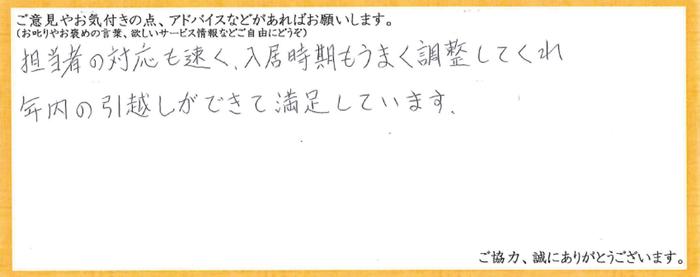 ご意見やお気付きの点、アドバイスなどがあればお願いします。
(お叱りやお褒めの言葉、欲しいサービス情報などご自由にどうぞ)
担当者の対応も速く、入居時期もうまく調整してくれ
年内の引越しができて満足しています.
ご協力、誠にありがとうございます。